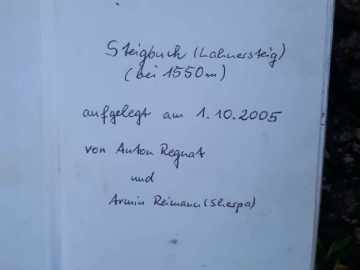 Steigbuch (Lahnersteig)
(bei 1550m)
aufgelegt am 1.10.2005
von Anton Regnat
und
Armin Reimann (Sherpa)